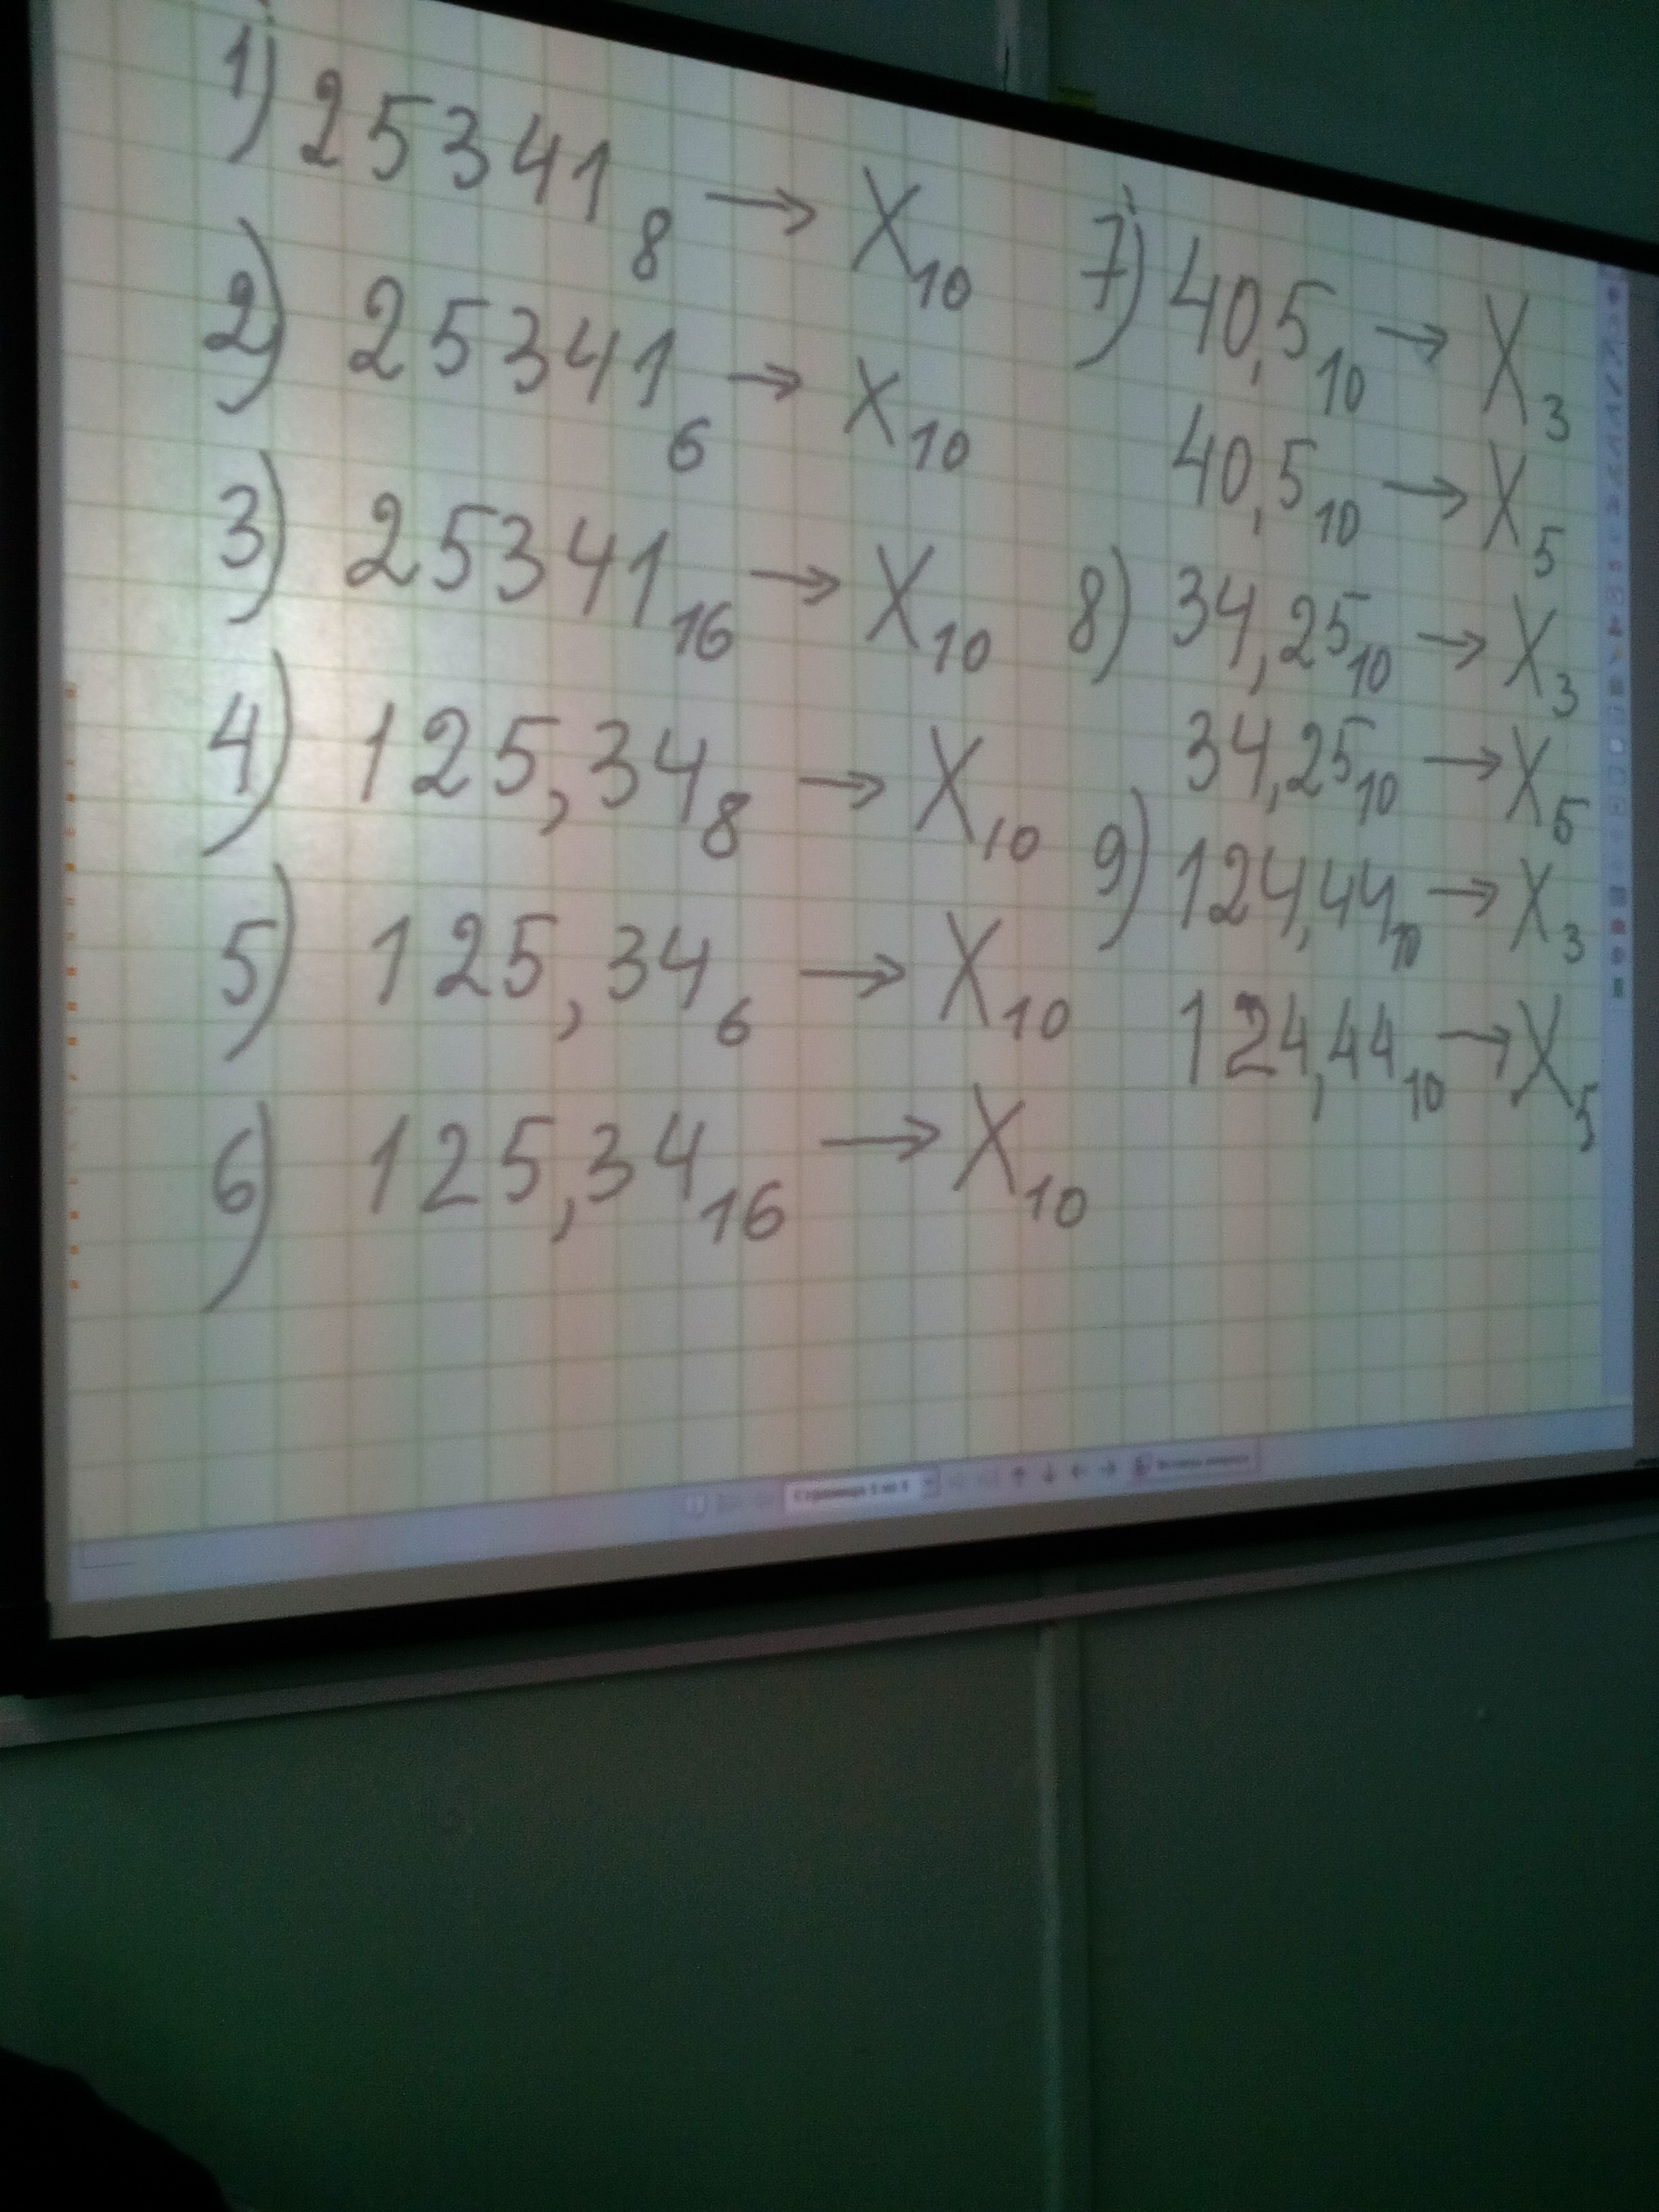 1) 25341₈ → X₁₀
2) 25341₆ → X₁₀
3) 25341₁₆ → X₁₀
4) 125,34₈ → X₁₀
5) 125,34₆ → X₁₀
6) 125,34₁₆ → X₁₀
7) 40,5₁₀ → X₃
40,5₁₀ → X₅
8) 34,25₁₀ → X₃
34,25₁₀ → X₅
9) 124,44₁₀ → X₃
124,44₁₀ → X₅
Страница